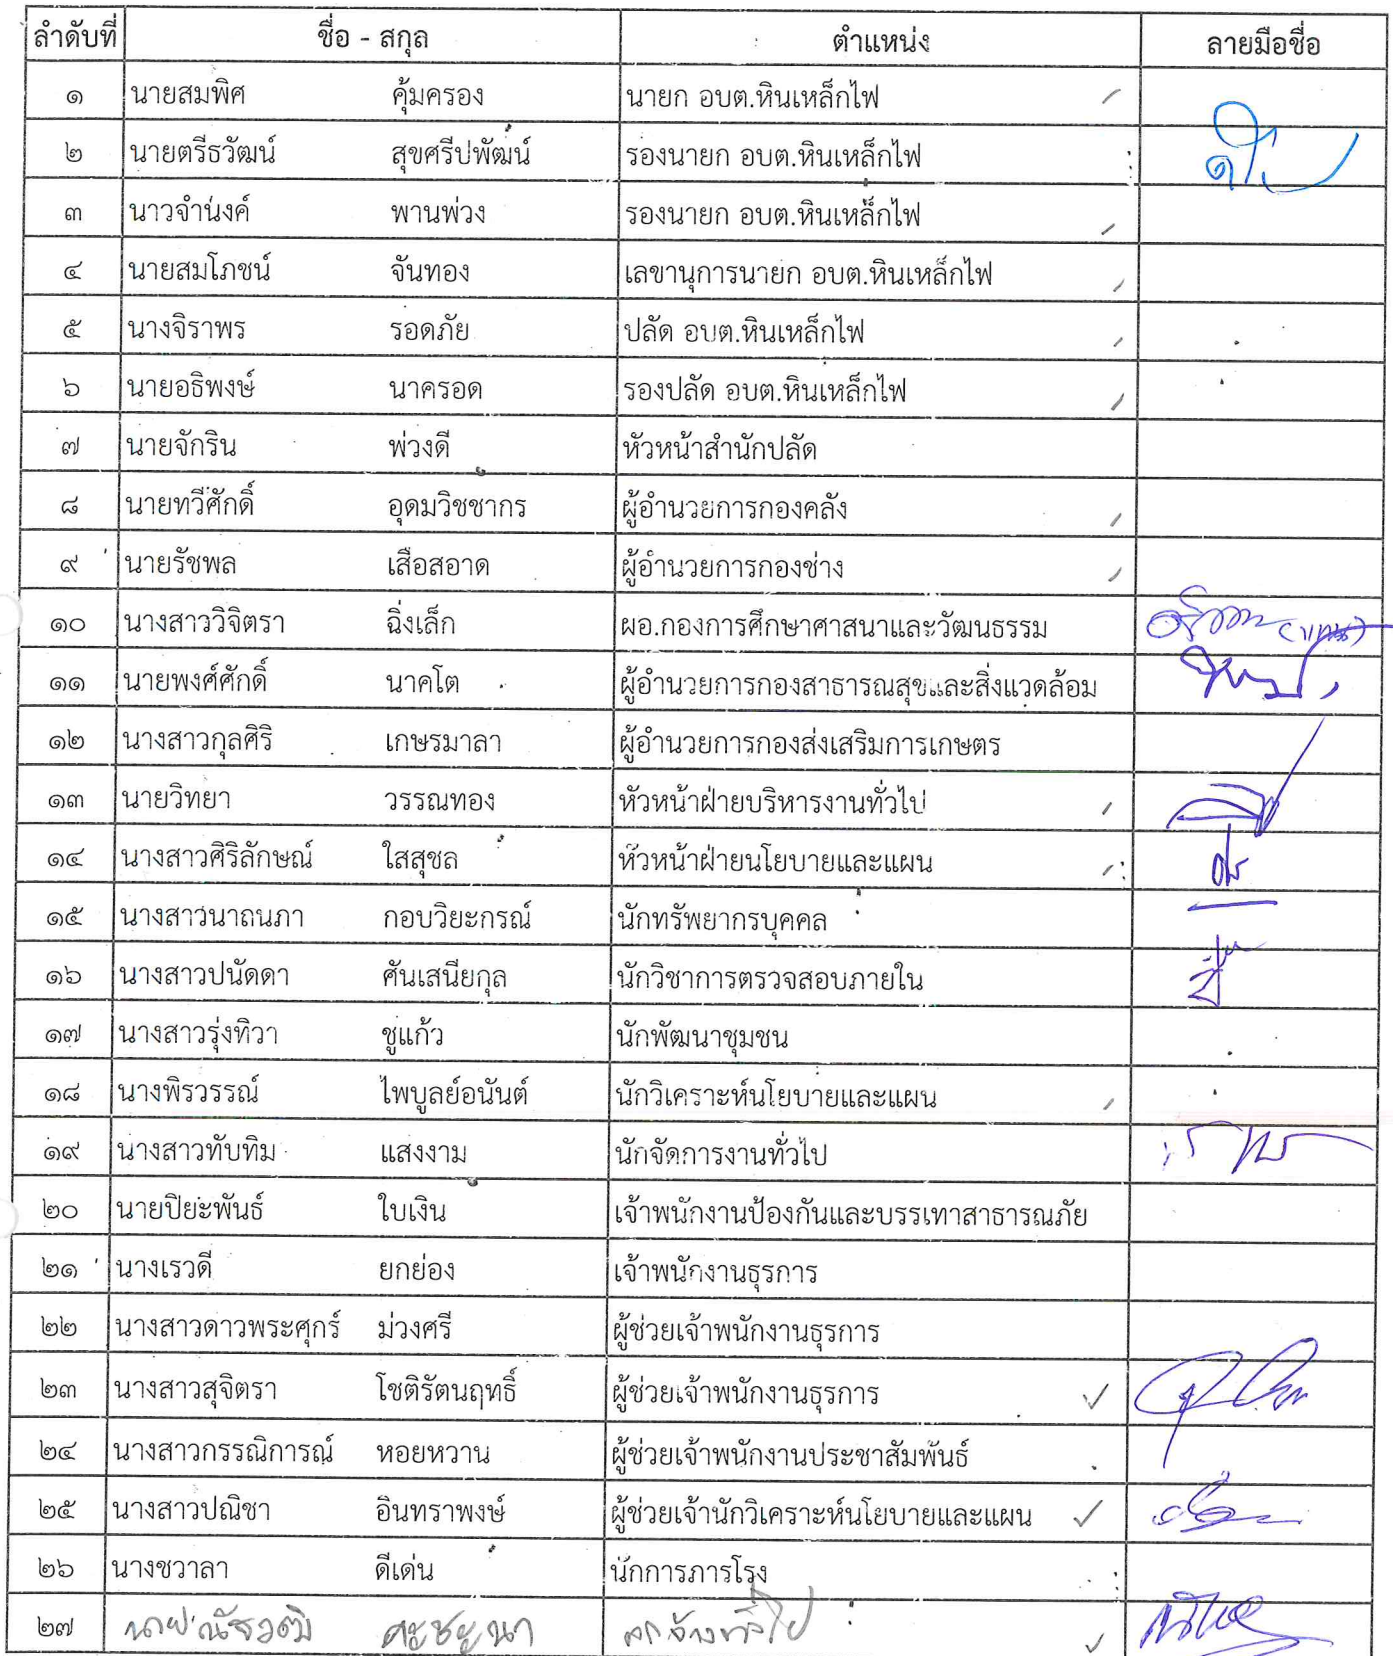 ลำดับที่ ชื่อ - สกุล ตำแหน่ง ลายมือชื่อ
๑ นายสมพิศ คุ้มครอง นายก อบต.หินเหล็กไฟ
๒ นายตรีธวัฒน์ สุขศรีปพัฒน์ รองนายก อบต.หินเหล็กไฟ
๓ นาวจำนงค์ พานพ่วง รองนายก อบต.หินเหล็กไฟ
๔ นายสมโภชน์ จันทอง เลขานุการนายก อบต.หินเหล็กไฟ
๕ นางจิราพร รอดภัย ปลัด อบต.หินเหล็กไฟ
๖ นายอธิพงษ์ นาครอด รองปลัด อบต.หินเหล็กไฟ
๗ นายจักริน พ่วงดี หัวหน้าสำนักปลัด
๘ นายทวีศักดิ์ อุดมวิชชากร ผู้อำนวยการกองคลัง
๙ นายรัชพล เสือสอาด ผู้อำนวยการกองช่าง
๑๐ นางสาววิจิตรา ฉิ่งเล็ก ผอ.กองการศึกษาศาสนาและวัฒนธรรม (แทน)
๑๑ นายพงศ์ศักดิ์ นาคโต ผู้อำนวยการกองสาธารณสุขและสิ่งแวดล้อม
๑๒ นางสาวกุลศิริ เกษรมาลา ผู้อำนวยการกองส่งเสริมการเกษตร
๑๓ นายวิทยา วรรณทอง หัวหน้าฝ่ายบริหารงานทั่วไป
๑๔ นางสาวศิริลักษณ์ ใสสุชล หัวหน้าฝ่ายนโยบายและแผน
๑๕ นางสาวนาถนภา กอบวิยะกรณ์ นักทรัพยากรบุคคล
๑๖ นางสาวปนัดดา ศันเสนียกุล นักวิชาการตรวจสอบภายใน
๑๗ นางสาวรุ่งทิวา ชูแก้ว นักพัฒนาชุมชน
๑๘ นางพิรวรรณ์ ไพบูลย์อนันต์ นักวิเคราะห์นโยบายและแผน
๑๙ นางสาวทับทิม แสงงาม นักจัดการงานทั่วไป
๒๐ นายปิยะพันธ์ ใบเงิน เจ้าพนักงานป้องกันและบรรเทาสาธารณภัย
๒๑ นางเรวดี ยกย่อง เจ้าพนักงานธุรการ
๒๒ นางสาวดาวพระศุกร์ ม่วงศรี ผู้ช่วยเจ้าพนักงานธุรการ
๒๓ นางสาวสุจิตรา โชติรัตนฤทธิ์ ผู้ช่วยเจ้าพนักงานธุรการ
๒๔ นางสาวกรรณิการณ์ หอยหวาน ผู้ช่วยเจ้าพนักงานประชาสัมพันธ์
๒๕ นางสาวปณิชา อินทราพงษ์ ผู้ช่วยเจ้านักวิเคราะห์นโยบายและแผน
๒๖ นางชวาลา ดีเด่น นักการภารโรง
๒๗